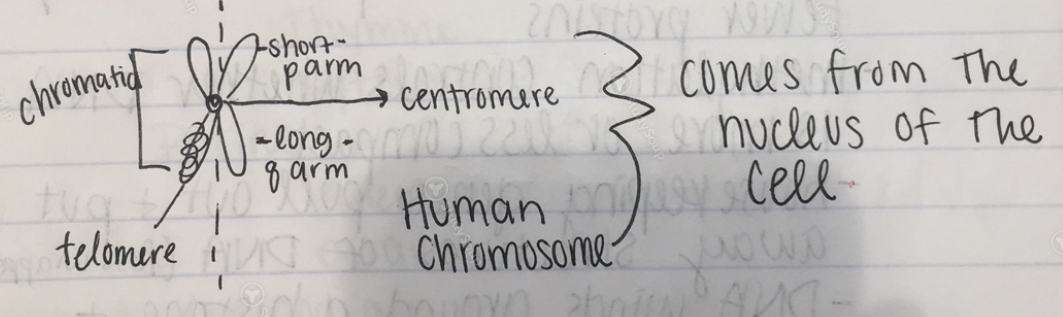 -short-
p arm
chromatid
centromere
-long-
q arm
telomere
Human
Chromosome
comes from The
nucleus of The
Cell